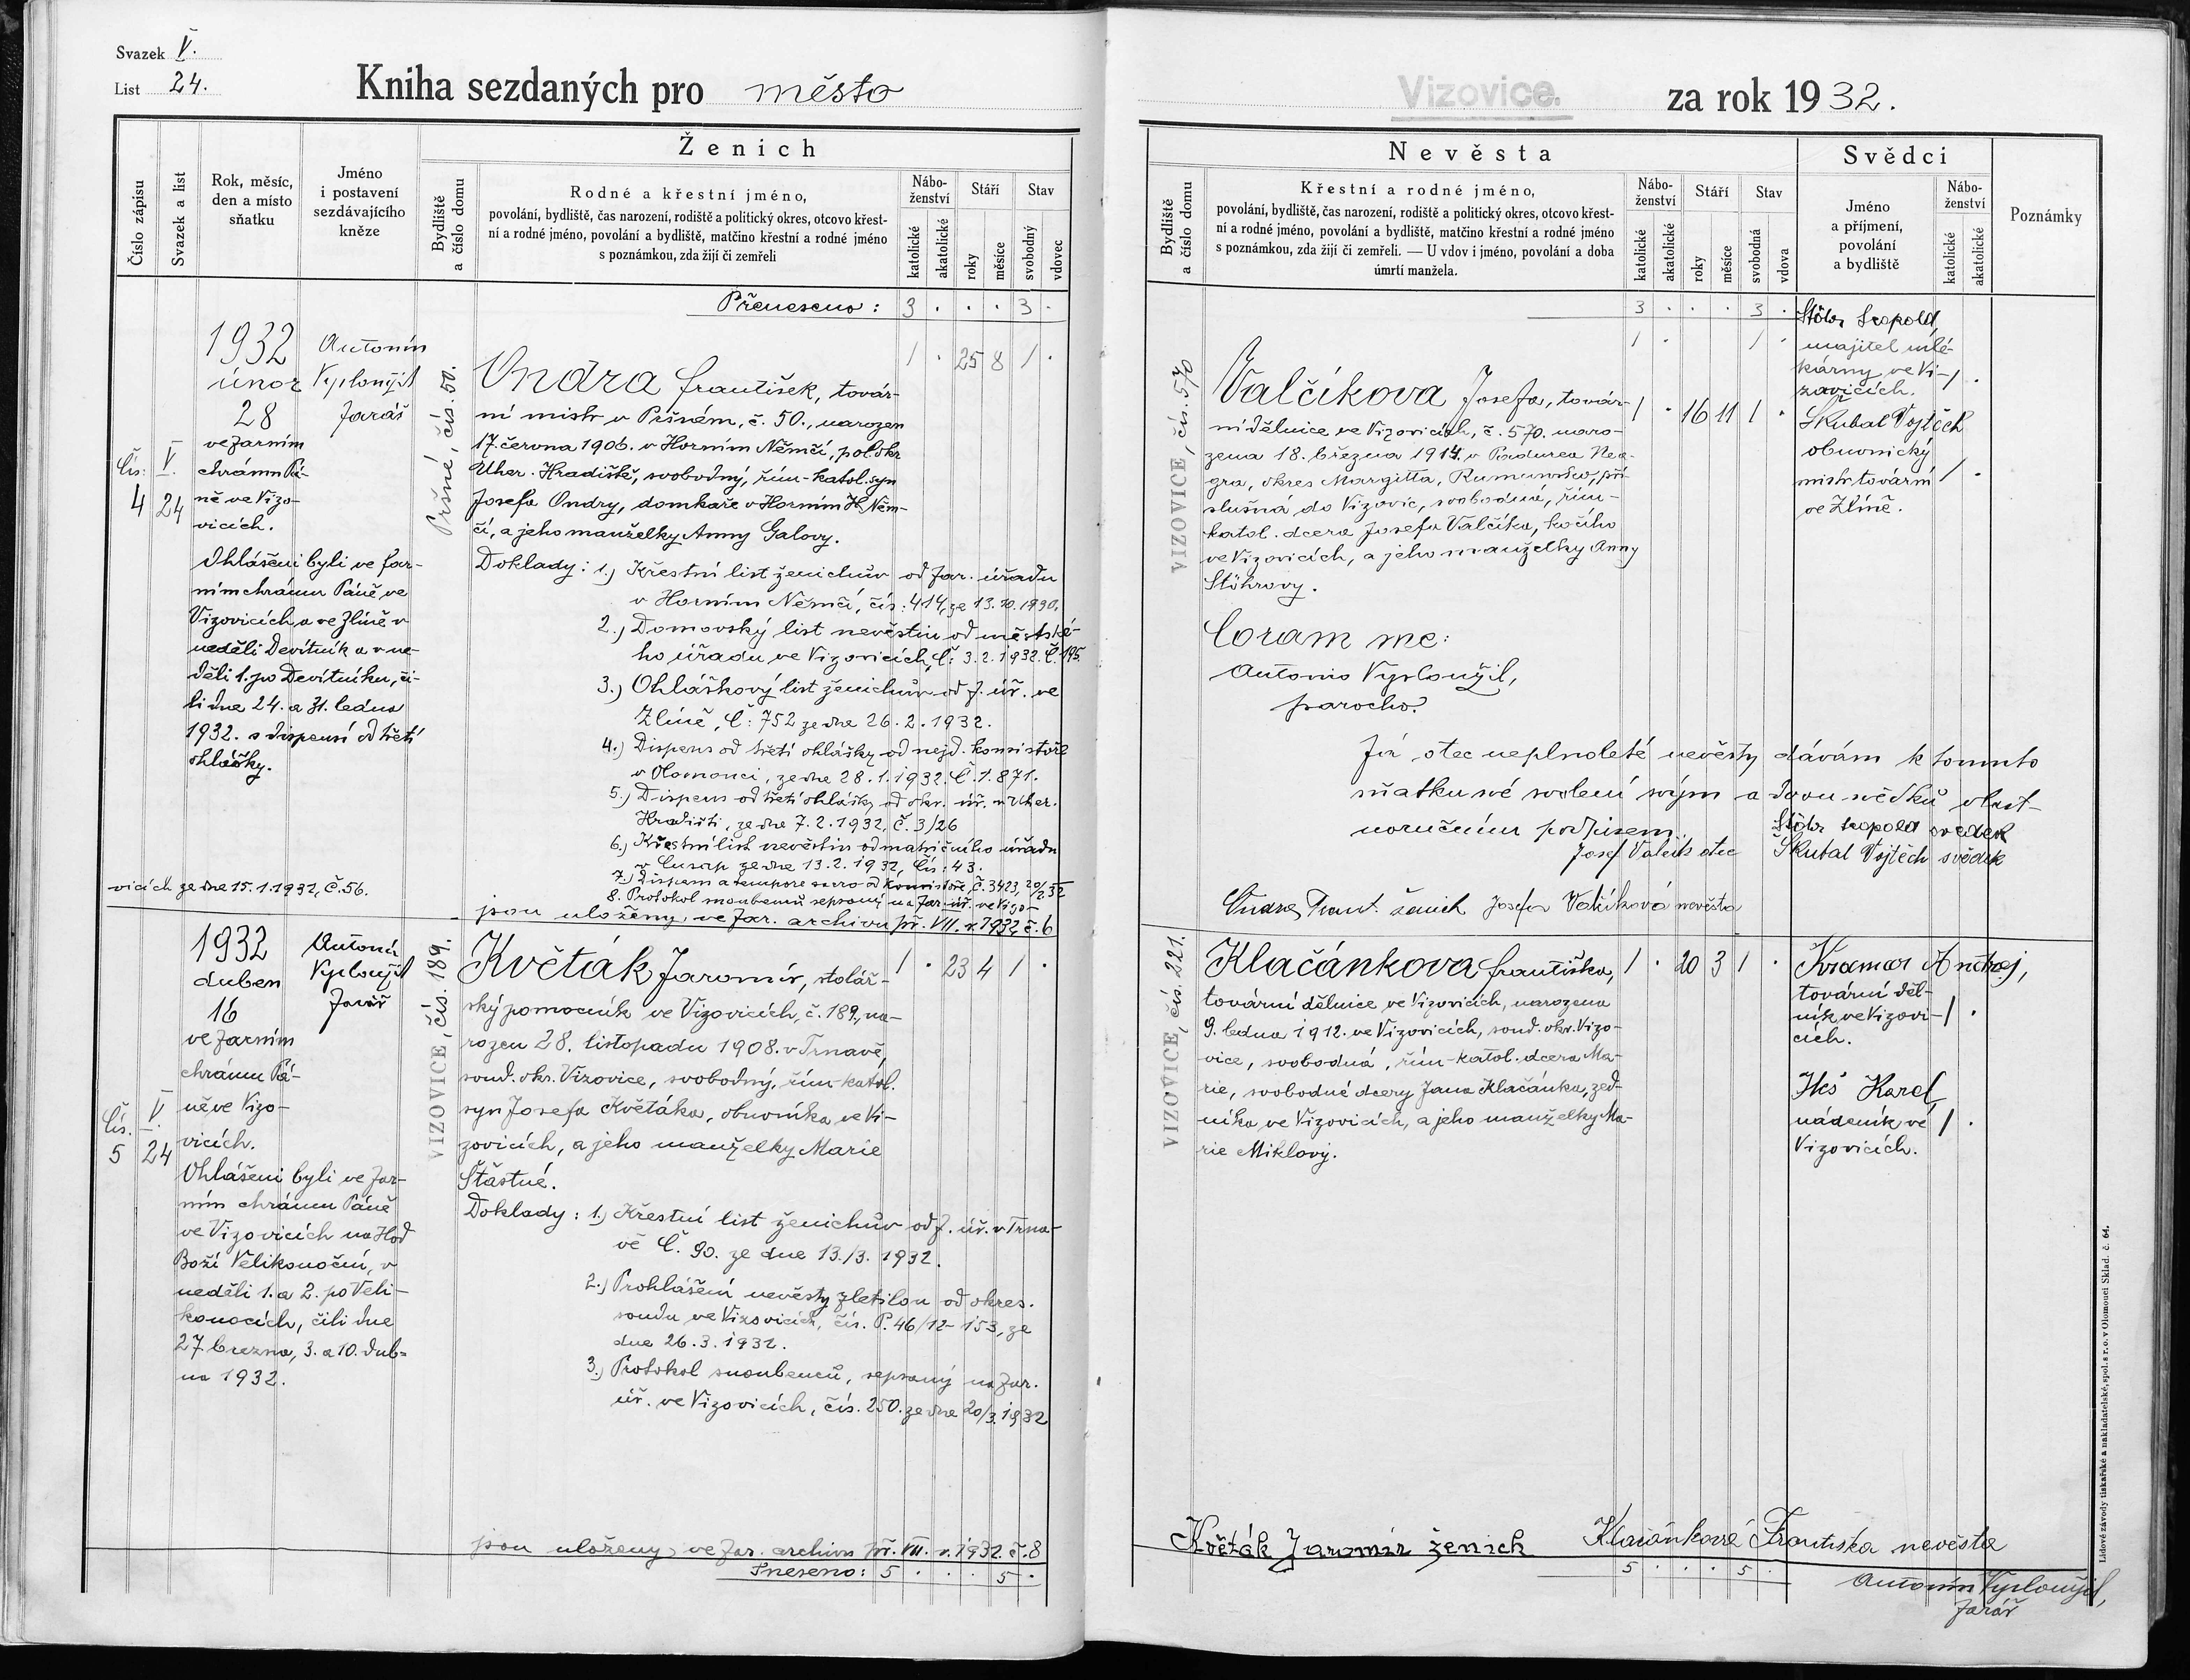 Svazek V.
List 24.
Kniha sezdaných pro město
Číslo zápisu
Svazek a list
Rok, měsíc,
den a místo
sňatku
Jméno
i postavení
sezdávajícího
kněze
Ženich
Bydliště
a číslo domu
Rodné a křestní jméno,
povolání, bydliště, čas narození, rodiště a politický okres, otcovo křest-
ní a rodné jméno, povolání a bydliště, matčino křestní a rodné jméno
s poznámkou, zda žijí či zemřeli
Nábo-
ženství
katolické
akatolické
Stáří
roky
měsíce
Stav
svobodný
vdovec
Přeneseno: 3 . . . 3 .
Čís: 4
V. 24
1932
únor
28
ve farním
chrámu Pá-
ně ve Vizo-
vicích.
Ohlášeni byli ve far-
ním chrámu Páně ve
Vizovicích a ve Zlíně v
neděli Devítník a v ne-
děli 1. po Devítníku, či-
li dne 24. a 31. ledna
1932. s dispensí od třetí
ohlášky.
Antonín
Vyplouyžil
farář
Pršné, čís. 50.
Ondra František, továr-
ní mistr v Pršném, č. 50., narozen
17. června 1906. v Horním Němčí, pol. okr.
Uher. Hradiště, svobodný, řím-katol. syn
Josefa Ondry, domkaře v Horním H. Něm-
čí, a jeho manželky Anny Galovy.
1 . 25 8 1 .
Doklady: 1.) Křestní list ženichův od far. úřadu
v Horním Němčí, čís: 414, ze 13.10.1930.
2.) Domovský list nevěstin od městské-
ho úřadu ve Vizovicích, č: 3.2.1932. Č. 195.
3.) Ohláškový list ženichův od f. úř. ve
Zlíně, Č: 752 ze dne 26.2.1932.
4.) Dispens od třetí ohlášky od nejd. konsistoře
v Olomouci, ze dne 28.1.1932. Č. 1.871.
5.) Dispens od třetí ohlášky od okr. úř. v Uher.
Hradišti, ze dne 7.2.1932, č. 3/26
6.) Křestní list nevěstin od matričního úřadu
ze dne 13.2.1932, Čís: 43.
7.) Dispens a tempore sacro od konsistoře, č. 3423, 20/2 32
8. Protokol snoubenců sepsaný na far. úř. ve Vizo-
vicích ze dne 15.1.1932, č. 56.
jsou uloženy ve far. archivu př. VII. r. 1932, č. 6
Čís. 5
V. 24
1932
duben
16
ve farním
chrámu Pá-
ně ve Vizo-
vicích.
Ohlášeni byli ve far-
ním chrámu Páně
ve Vizovicích na Hod
Boží Velikonoční, v
neděli 1. a 2. po Veli-
konocích, čili dne
27. března, 3. a 10. dub-
na 1932.
Antonín
Vyplouyžil
farář
VIZOVICE, čís. 189.
Květák Jaromír, stolář-
ský pomocník ve Vizovicích, č. 189., na-
rozen 28. listopadu 1908. v Trnavě,
soud. okr. Vizovice, svobodný, řím-katol.
syn Josefa Květáka, obuvníka ve Vi-
zovicích, a jeho manželky Marie
Šťastné.
1 . 23 4 1 .
Doklady: 1.) Křestní list ženichův od f. úř. v Trna-
vě Č. 90. ze dne 13./3. 1932.
2.) Prohlášení nevěsty zletilou od okres.
soudu ve Vizovicích, čís. P. 46/12-153, ze
dne 26.3.1932.
3.) Protokol snoubenců, sepsaný na far.
úř. ve Vizovicích, čís. 250. ze dne 20/3. 1932
jsou uloženy ve far. archivu př. VII. r. 1932. č. 8
Sneseno: 5 . . . 5 .
Vizovice. za rok 1932.
Nevěsta
Bydliště
a číslo domu
Křestní a rodné jméno,
povolání, bydliště, čas narození, rodiště a politický okres, otcovo křest-
ní a rodné jméno, povolání a bydliště, matčino křestní a rodné jméno
s poznámkou, zda žijí či zemřeli. — U vdov i jméno, povolání a doba
úmrtí manžela.
Nábo-
ženství
katolické
akatolické
Stáří
roky
měsíce
Stav
svobodná
vdova
Svědci
Jméno
a příjmení,
povolání
a bydliště
Nábo-
ženství
katolické
akatolické
Poznámky
3 . . . 3 .
VIZOVICE, čís. 570
Valčíkova Josefa, továr-
ní dělnice ve Vizovicích, č. 570. naro-
zena 18. března 1914. v Padurea Nea-
gra, okres Margitta, Rumunsko, pří-
slušná do Vizovic, svobodná, řím-
katol. dcera Josefa Valčíka, kočího
ve Vizovicích, a jeho manželky Anny
Stöhrovy.
1 . 16 11 1 .
Stöhr Leopold,
majitel mlé-
kárny ve Vi-
zovicích.
1 .
Škubal Vojtěch
obuvnický
mistr tovární
ve Zlíně.
1 .
Coram me:
Antonio Vyplouyžil,
parocho.
Já otec neplnoleté nevěsty dávám k tomuto
sňatku své svolení svým a dvou svědků vlast-
noručním podpisem.
Josef Valčík otec
Stöhr Leopold svědek
Škubal Vojtěch svědek
Ondra Frant. ženich Josefa Valčíková nevěsta
VIZOVICE, čís. 221.
Klačánkova Františka,
tovární dělnice ve Vizovicích, narozena
9. ledna 1912. ve Vizovicích, soud. okr. Vizo-
vice, svobodná, řím-katol. dcera Ma-
rie, svobodné dcery Jana Klačánka, zed-
níka ve Vizovicích, a jeho manželky Ma-
rie Miklovy.
1 . 20 3 1 .
Kramar Andrej,
tovární děl-
ník ve Vizovi-
cích.
1 .
Karel
nádeník ve
Vizovicích.
1 .
Květák Jaromír ženich Klačánková Františka nevěsta
5 . . . 5 .
Antonín Vyplouyžil,
farář
Lidové závody tiskařské a nakladatelské, spol. s r. o. v Olomouci Sklad. č. 64.